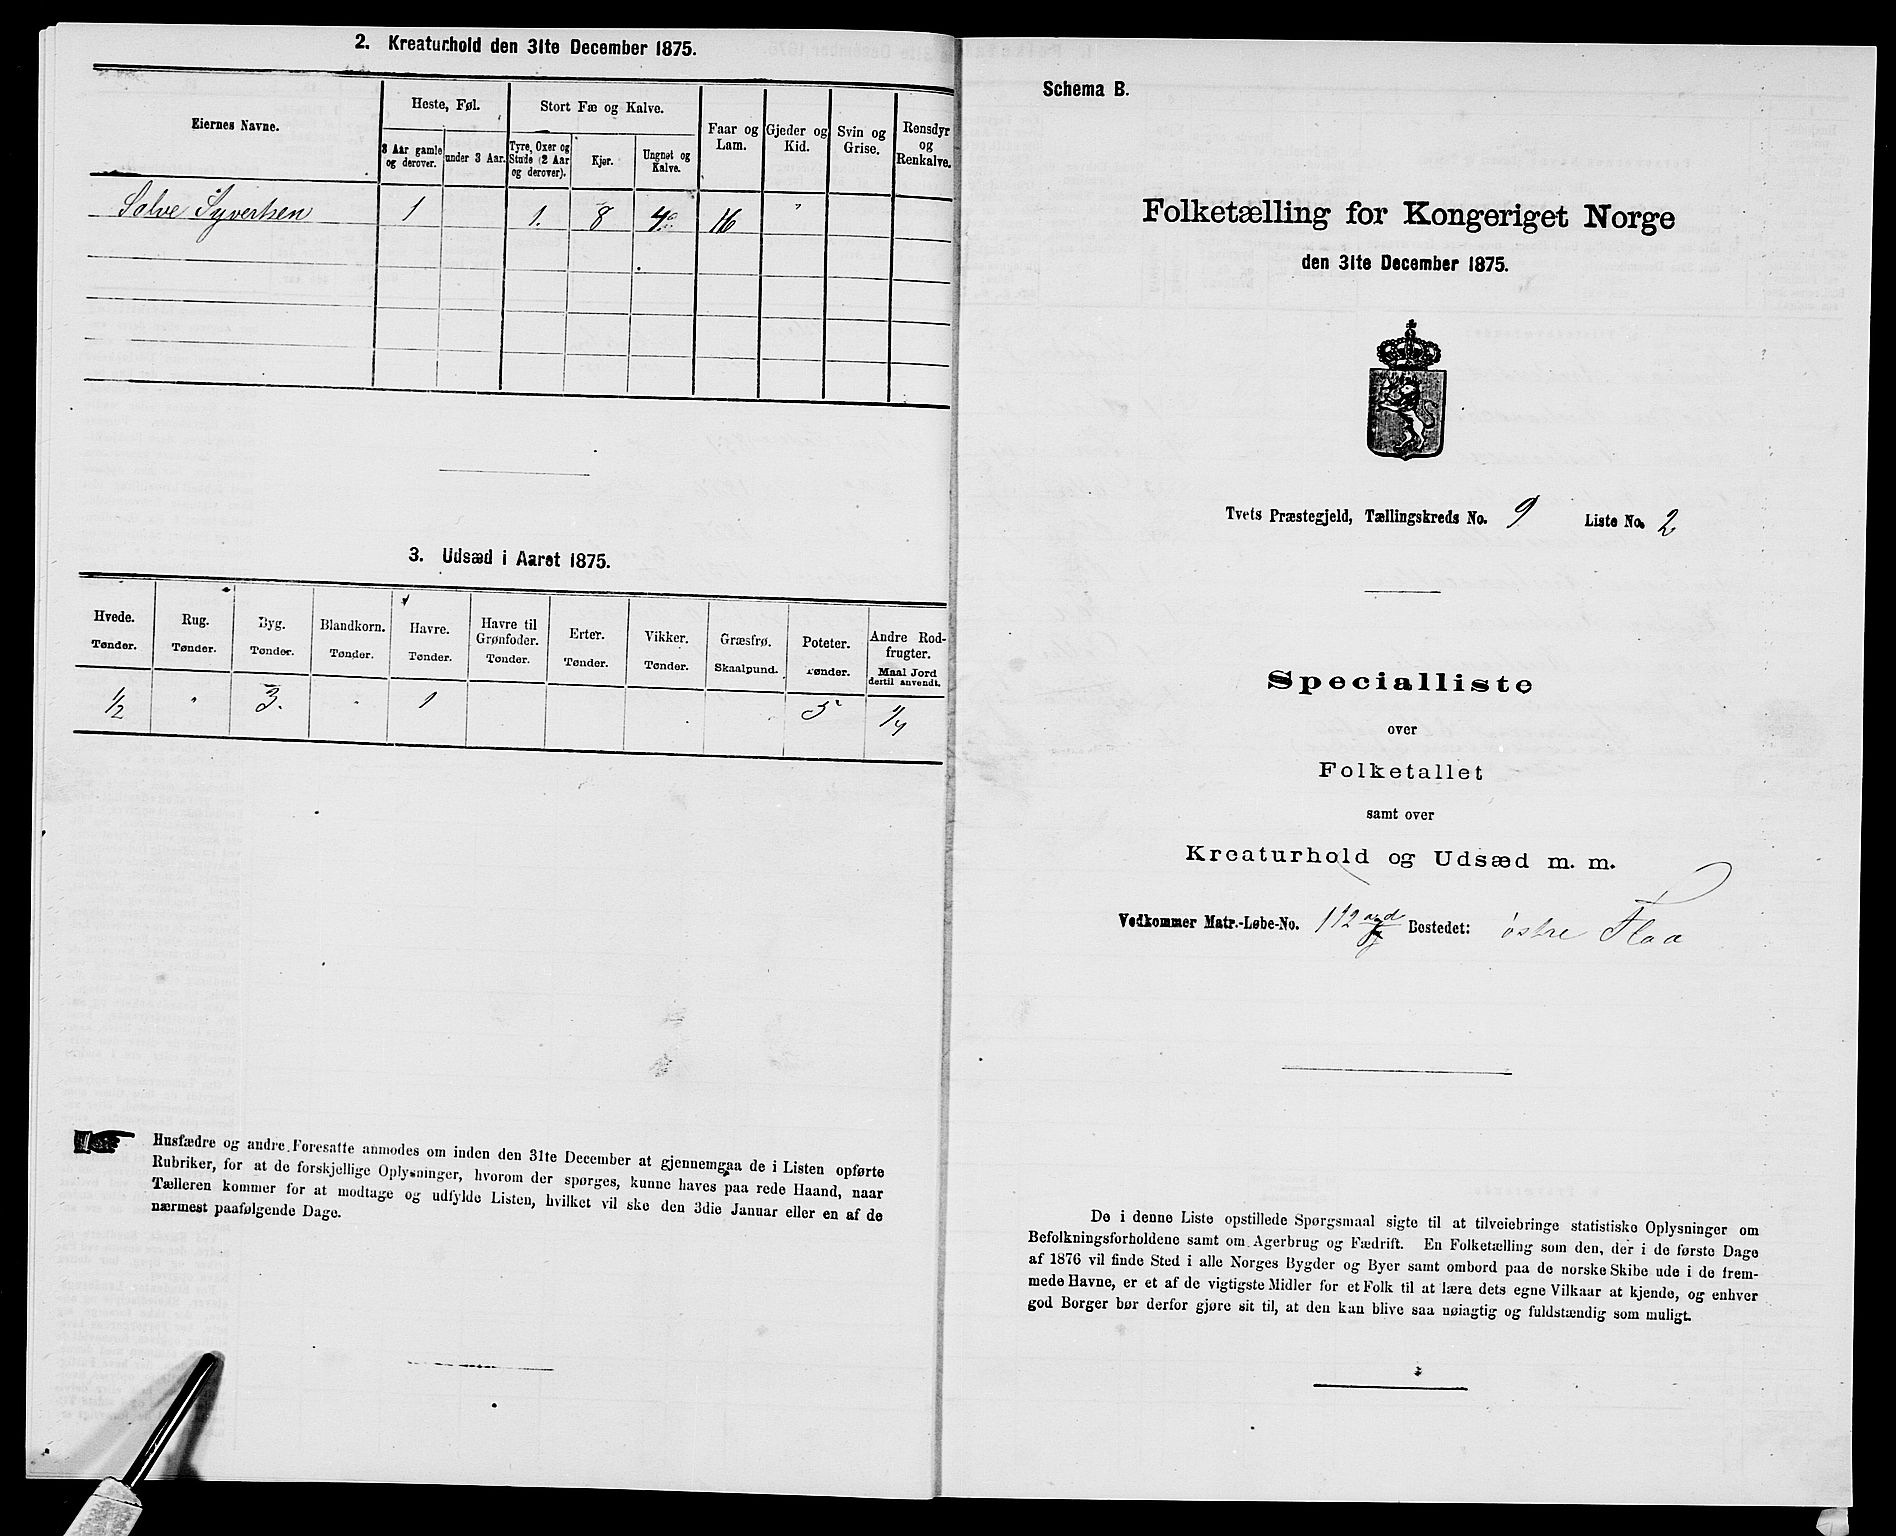 2. Kreaturhold den 31te December 1875.
Eiernes Navne.
Heste, Føl.
Stort Fæ og Kalve.
Faar og Lam.
Gjeder og Kid.
Svin og Grise.
Rensdyr og Renkalve.
3 Aar gamle og derover.
under 3 Aar.
Tyre, Oxer og Stude (2 Aar og derover).
Kjør.
Ungnøt og Kalve.
Salve Syvertsen 1 1. 8 4 16 "
3. Udsæd i Aaret 1875.
Hvede. Rug. Byg. Blandkorn. Havre. Havre til Grønfoder. Erter. Vikker. Græsfrø. Poteter. Andre Rodfrugter.
Tønder. Tønder. Tønder. Tønder. Tønder. Tønder. Tønder. Tønder. Skaalpund. Tønder. Maal Jord dertil anvendt.
1/2 " 3. " 1 5 1/4
Husfædre og andre Foresatte anmodes om inden den 31te December at gjennemgaa de i Listen opførte
Rubriker, for at de forskjellige Oplysninger, hvorom der spørges, kunne haves paa rede Haand, naar
Tælleren kommer for at modtage og udfylde Listen, hvilket vil ske den 3die Januar eller en af de
nærmest paafølgende Dage.
Schema B.
Folketælling for Kongeriget Norge
den 31te December 1875.
Tvets Præstegjeld, Tællingskreds No. 9 Liste No. 2
Specialliste
over
Folketallet
samt over
Kreaturhold og Udsæd m. m.
Vedkommer Matr.-Løbe-No. 112 Bostedet: østre Flaa
De i denne Liste opstillede Spørgsmaal sigte til at tilveiebringe statistiske Oplysninger om
Befolkningsforholdene samt om Agerbrug og Fædrift. En Folketælling som den, der i de første Dage
af 1876 vil finde Sted i alle Norges Bygder og Byer samt ombord paa de norske Skibe ude i de frem-
mede Havne, er et af de vigtigste Midler for et Folk til at lære dets egne Vilkaar at kjende, og enhver
god Borger bør derfor gjøre sit til, at den kan blive saa nøiagtig og fuldstændig som muligt.